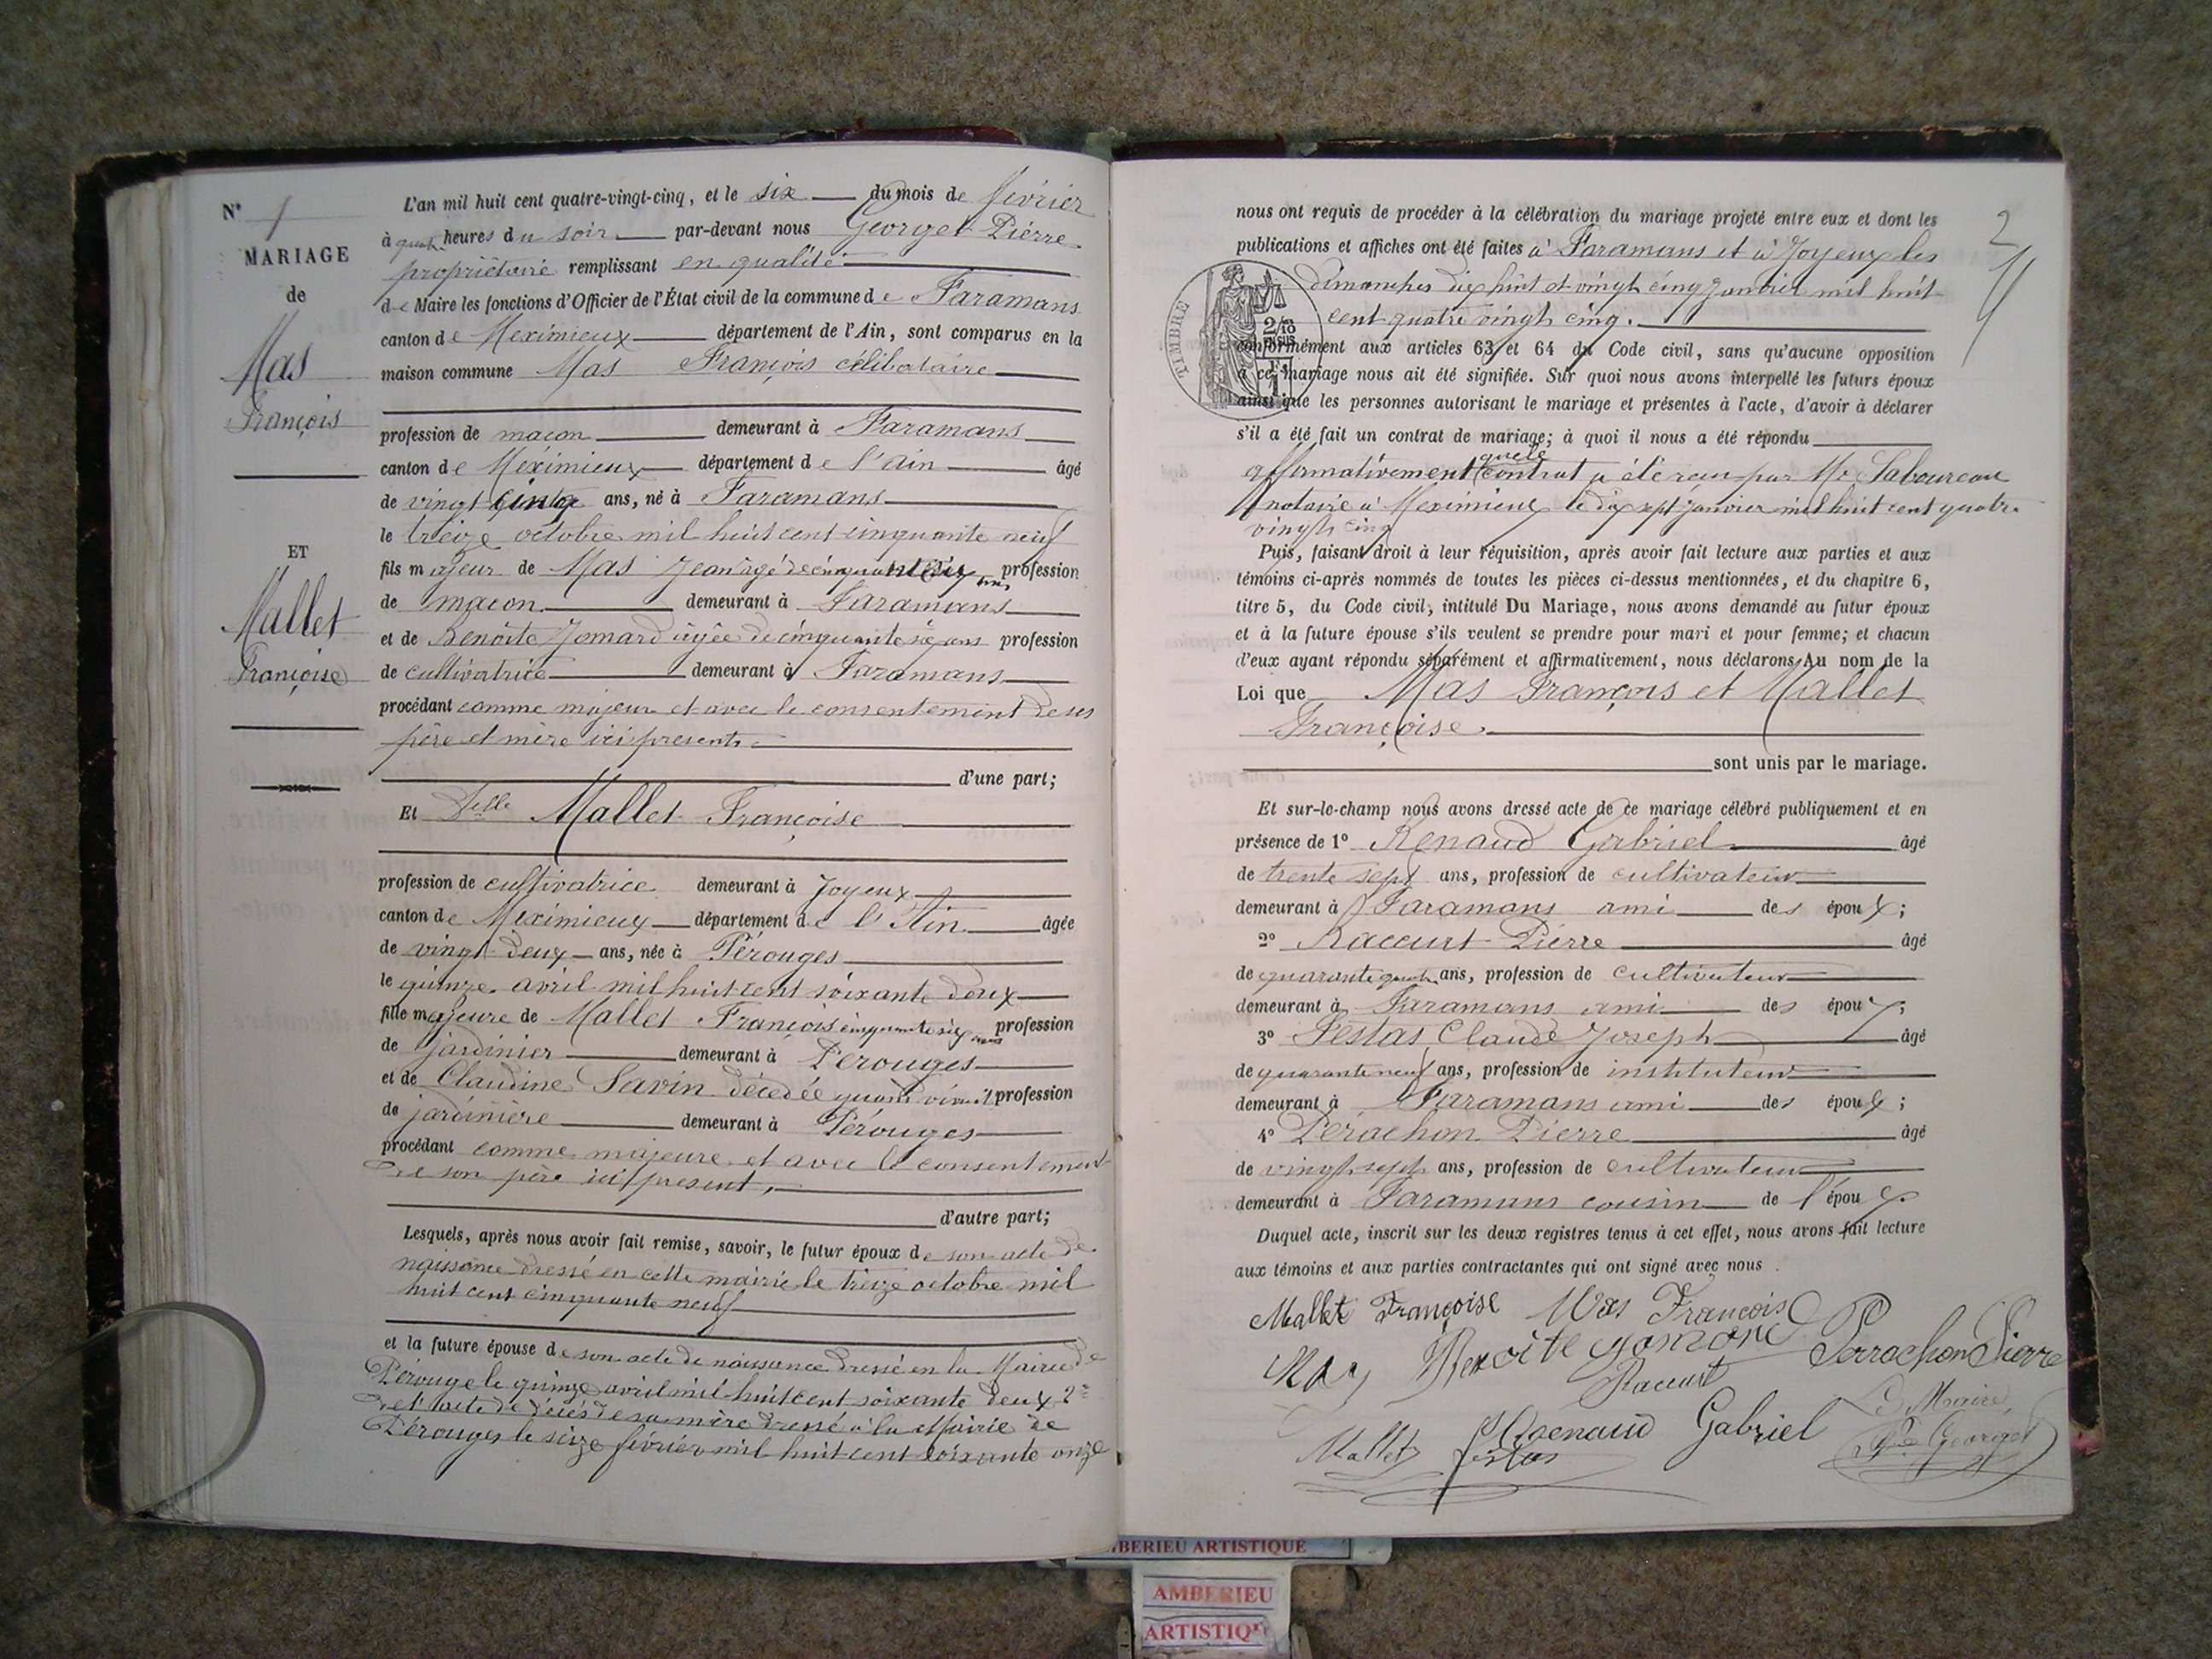 N° 1
MARIAGE
de
Mas
François
ET
Mallet
Françoise
L'an mil huit cent quatre-vingt-cinq, et le six du mois de février
à quatre heures du soir par-devant nous Georget Pierre
propriétaire remplissant en qualité
de Maire les fonctions d'Officier de l'État civil de la commune de Faramans
canton de Meximieux département de l'Ain, sont comparus en la
maison commune Mas François célibataire
profession de maçon demeurant à Faramans
canton de Meximieux département de l'Ain âgé
de vingt cinq ans, né à Faramans
le treize octobre mil huit cent cinquante neuf
fils majeur de Mas Jean âgé de cinquante six ans, profession
de maçon demeurant à Faramans
et de Benoîte Jomard âgée de cinquante six ans profession
de cultivatrice demeurant à Faramans
procédant comme majeur et avec le consentement de ses
père et mère ici présents
d'une part;
Et Delle Mallet Françoise
profession de cultivatrice demeurant à Joyeux
canton de Meximieux département de l'Ain âgée
de vingt deux ans, née à Pérouges
le quinze avril mil huit cent soixante deux
fille majeure de Mallet François cinquante six ans profession
de jardinier demeurant à Pérouges
et de Claudine Savin décédée quand vivait profession
de jardinière demeurant à Pérouges
procédant comme majeure et avec le consentement
de son père ici présent,
d'autre part;
Lesquels, après nous avoir fait remise, savoir, le futur époux de son acte de
naissance dressé en cette mairie le treize octobre mil
huit cent cinquante neuf
et la future épouse de son acte de naissance dressé en la Mairie de
Pérouge le quinze avril mil huit cent soixante deux 2°
de l'acte de décès de sa mère dressé à la Mairie de
Pérouges le seize février mil huit cent soixante onze
2
nous ont requis de procéder à la célébration du mariage projeté entre eux et dont les
publications et affiches ont été faites à Faramans et à Joyeux les
dimanches dix huit et vingt cinq janvier mil huit
cent quatre vingt cinq.
TIMBRE
2/10
conformément aux articles 63 et 64 du Code civil, sans qu'aucune opposition
à ce mariage nous ait été signifiée. Sur quoi nous avons interpellé les futurs époux
ainsi que les personnes autorisant le mariage et présentes à l'acte, d'avoir à déclarer
s'il a été fait un contrat de mariage; à quoi il nous a été répondu
affirmativement que le contrat a été reçu par Me Laboureau
notaire à Meximieux le dix sept janvier mil huit cent quatre
vingt cinq
Puis, faisant droit à leur réquisition, après avoir fait lecture aux parties et aux
témoins ci-après nommés de toutes les pièces ci-dessus mentionnées, et du chapitre 6,
titre 5, du Code civil, intitulé Du Mariage, nous avons demandé au futur époux
et à la future épouse s'ils veulent se prendre pour mari et pour femme; et chacun
d'eux ayant répondu séparément et affirmativement, nous déclarons Au nom de la
Loi que Mas François et Mallet
Françoise.
sont unis par le mariage.
Et sur-le-champ nous avons dressé acte de ce mariage célébré publiquement et en
présence de 1° Renaud Gabriel âgé
de trente sept ans, profession de cultivateur
demeurant à Faramans ami des époux;
2° Raccurt Pierre âgé
de quarante quatre ans, profession de cultivateur
demeurant à Faramans ami des époux;
3° Festas Claude Joseph âgé
de quarante neuf ans, profession de instituteur
demeurant à Faramans ami des époux;
4° Pérachon Pierre âgé
de vingt sept ans, profession de cultivateur
demeurant à Faramans cousin de l'époux.
Duquel acte, inscrit sur les deux registres tenus à cet effet, nous avons fait lecture
aux témoins et aux parties contractantes qui ont signé avec nous.
Mallet Françoise Mas François
Mas Benoite gomard Perrachon Pierre
Raccurt
Le Maire,
Mallet Festas Renaud Gabriel Georget
BERIEU ARTISTIQUE
AMBERIEU
ARTISTIQ